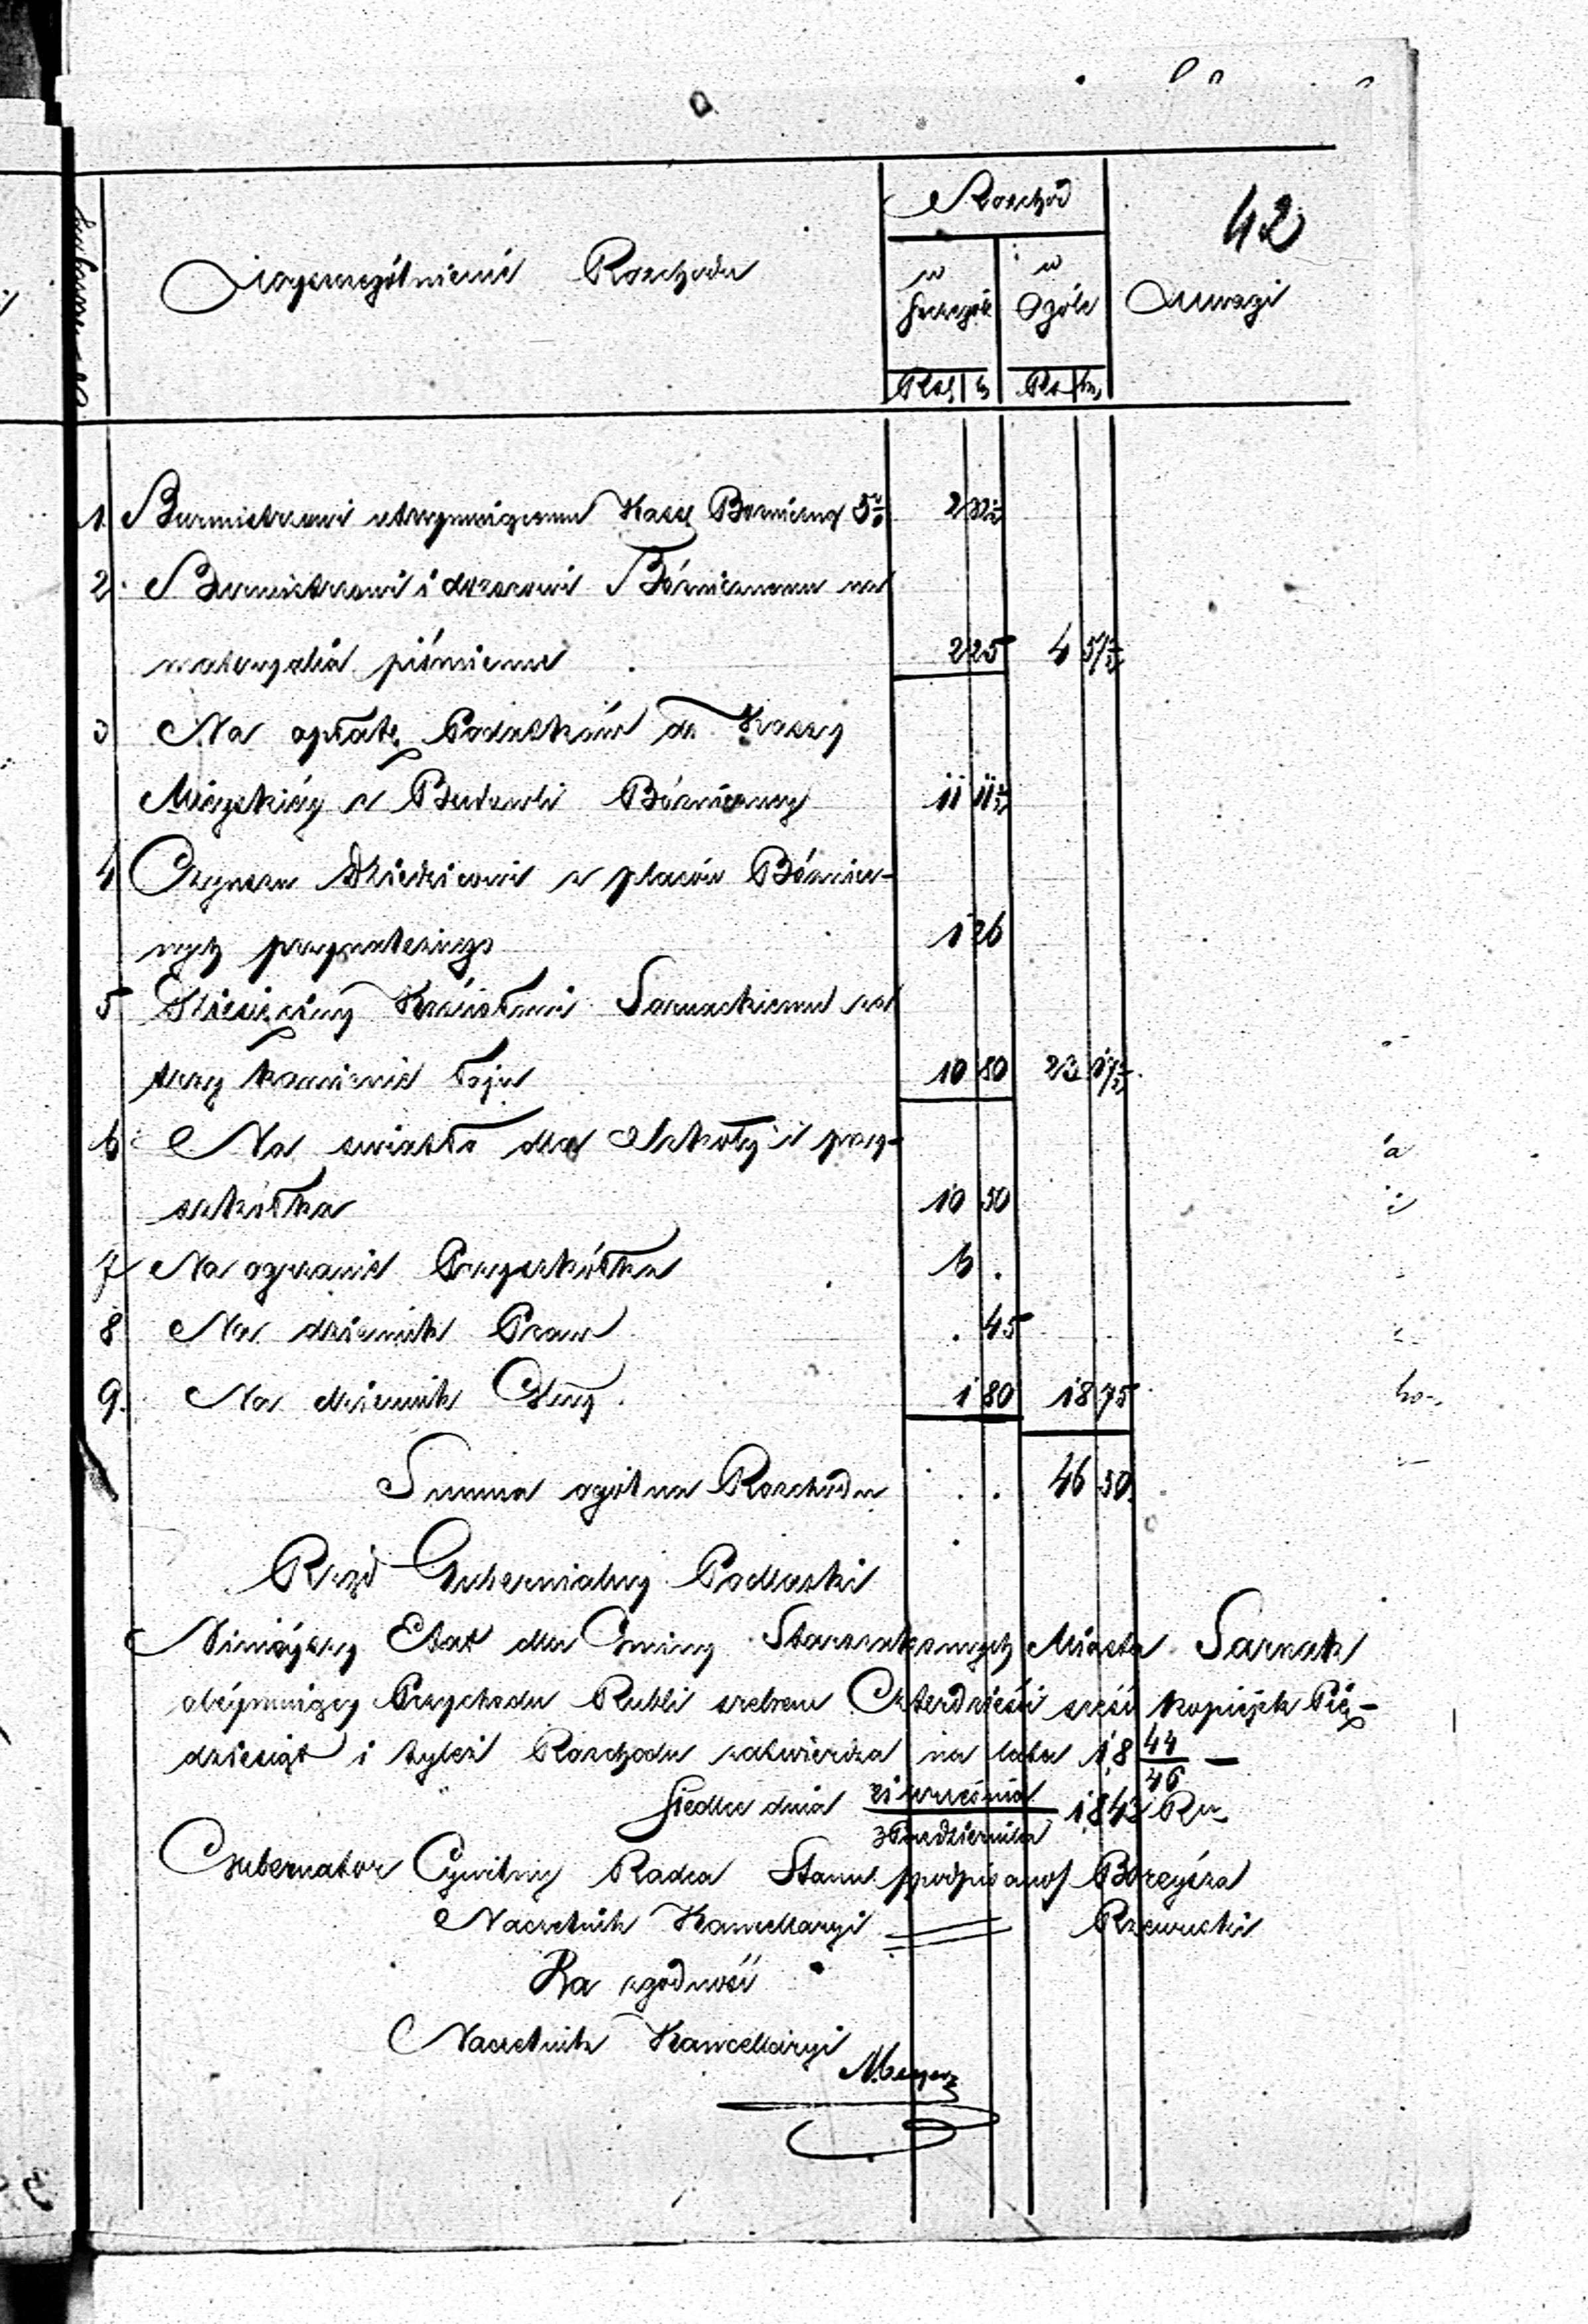 42
Wyszczególnienie Rozchodu
Rozchód
w Szczególe
w Ogóle
Uwagi
Rsr k
Rs k
1. Burmistrzowi utrzymującemu Kassę Bożniczną 5% 2 32½
2. Burmistrzowi i dozorowi Bóżnicznemu na
materyały piśmienne 2 25 4 57½
3 Na opłatę Podatków do Kassy
Mieyskiéy z Budowli Bóżniczney 11 11½
4 Czynszu Dziedzicowi z placów Bóżnicz-
nych przynależnego 1 26
5 Dziesięciny Kościołowi Sarnackiemu za
trzy kamienie łoju 10 80 23 17½
6 Na swiatło dla Szkoły i przy-
szkółka 10 50
7 Na ogrzanie Przyszkółka 6 .
8 Na dziennik Praw . 45
9. Na dziennik Glny. 1 80 18 75
Summa ogólna Rozchodu . . 46 50
Rząd Gubernialny Podlaski
Ninieyszy Etat dla Gminy Starozakonnych Miasta Sarnak
obéymuiący Przychodu Rubli srebrem Czterdzieści sześć kopiejek Pię-
dziesiąt i tyleż Rozchodu zatwierdza na lata 18 44/46 —
Siedlce dnia 21 września / 3 Października 1843 Ru
Gubernator Cywilny Radca Stanu /podpisano/
Naczelnik Kancellaryi
Za zgodność
Naczelnik Kancellaryi